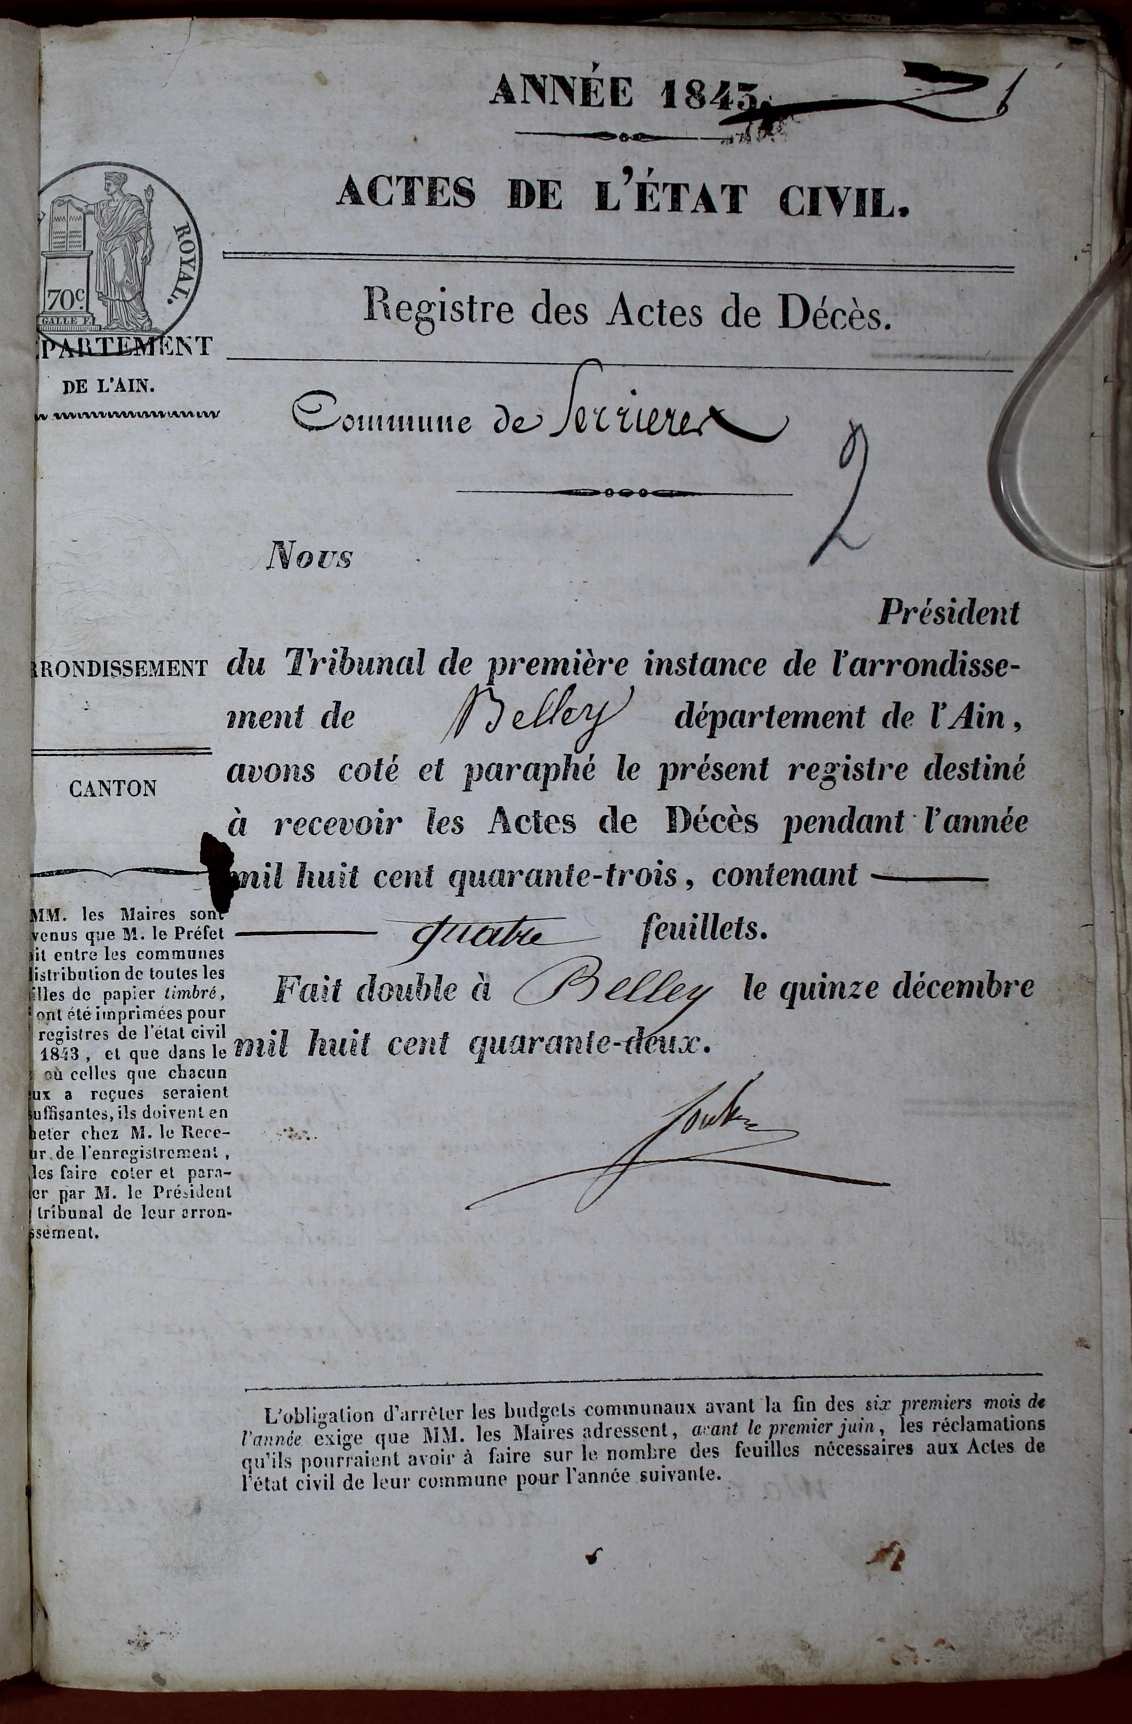 ANNÉE 1843.
ACTES DE L'ÉTAT CIVIL.
ROYAL.
70c.
GALLE F.
Registre des Actes de Décès.
PARTEMENT
DE L'AIN.
Commune de Serrieres
2
Nous
Président
RRONDISSEMENT
du Tribunal de première instance de l'arrondisse-
ment de Belley département de l'Ain,
avons coté et paraphé le présent registre destiné
CANTON
à recevoir les Actes de Décès pendant l'année
mil huit cent quarante-trois, contenant
quatre feuillets.
Fait double à Belley le quinze décembre
mil huit cent quarante-deux.
MM. les Maires sont
venus que M. le Préfet
it entre les communes
distribution de toutes les
illes de papier timbré,
ont été imprimées pour
registres de l'état civil
1843, et que dans le
où celles que chacun
ux a reçues seraient
uffisantes, ils doivent en
heter chez M. le Rece-
ur de l'enregistrement,
les faire coter et para-
er par M. le Président
tribunal de leur arron-
ssement.
L'obligation d'arrêter les budgets communaux avant la fin des six premiers mois de
l'année exige que MM. les Maires adressent, avant le premier juin, les réclamations
qu'ils pourraient avoir à faire sur le nombre des feuilles nécessaires aux Actes de
l'état civil de leur commune pour l'année suivante.